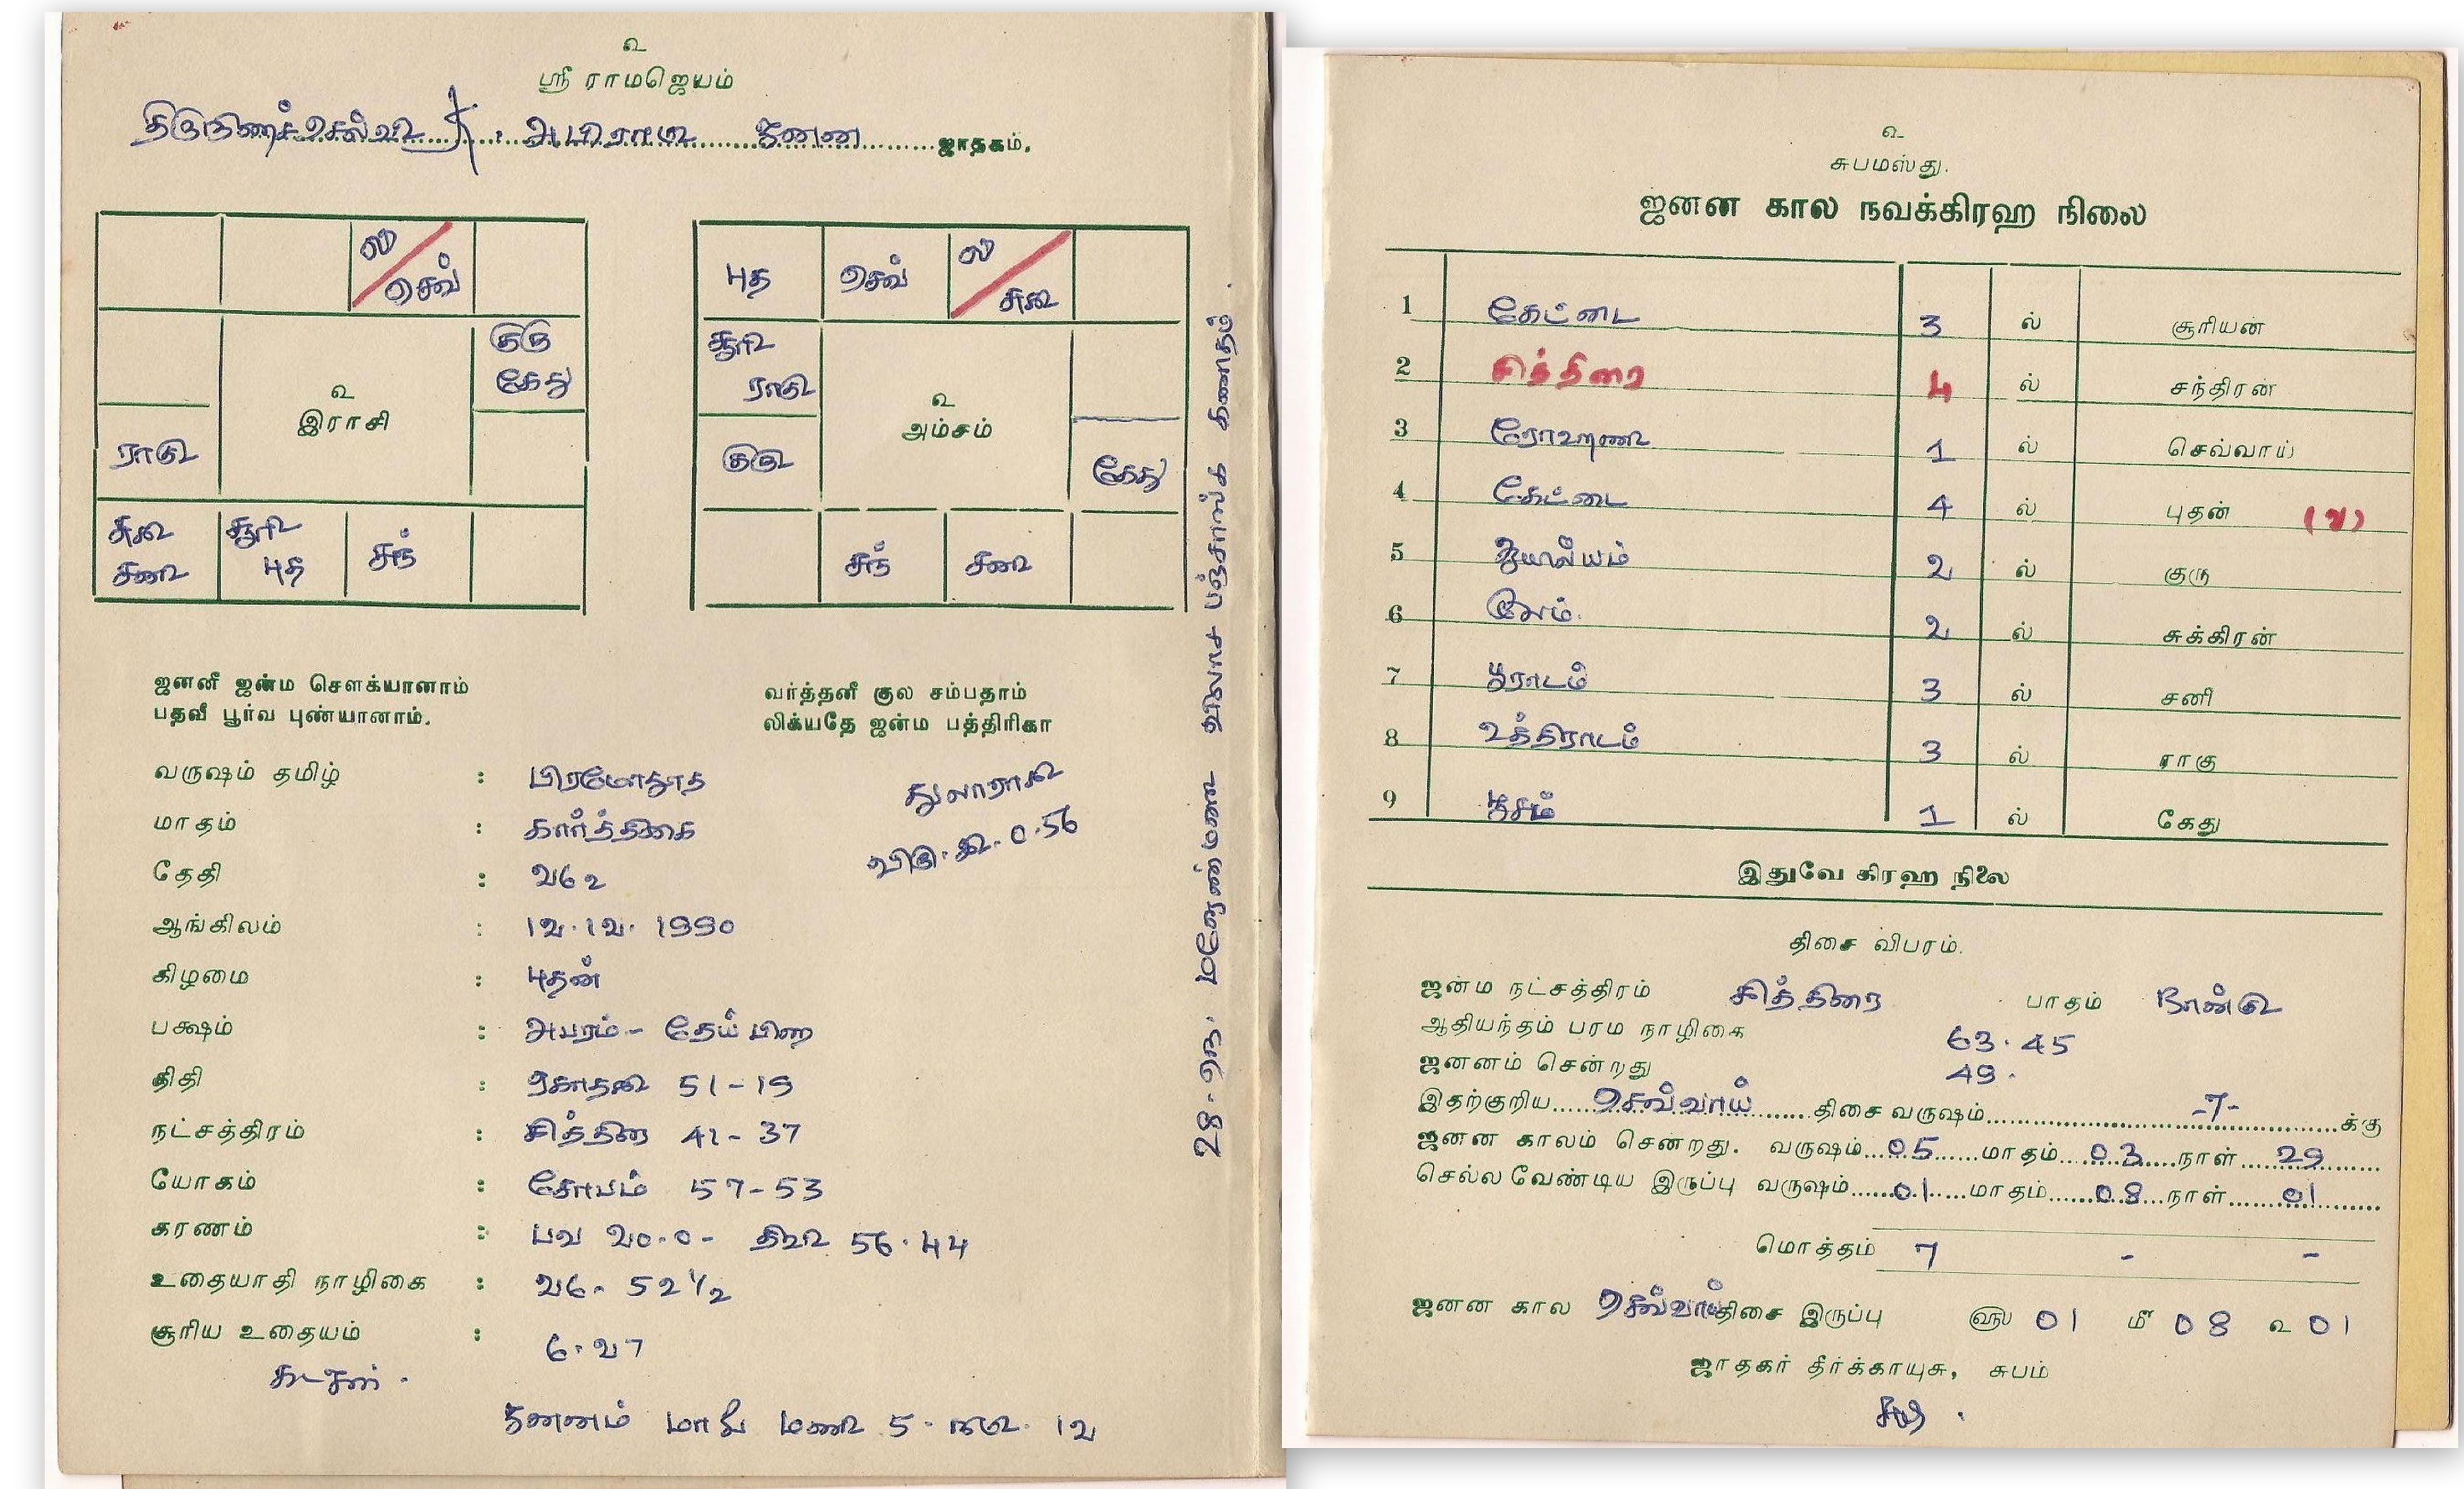 உ
ஸ்ரீ ராமஜெயம்
திருநிறைச்செல்வி : அபிராமி ஜனன ஜாதகம்.
ல/செவ்
குரு
கேது
உ
இராசி
ராகு
சுக
சனி
சூரி
புத
சந்
புத
செவ்
ல/சுக
சூரி
ராகு
உ
அம்சம்
குரு
கேது
சந்
சனி
ஜனனீ ஜன்ம சௌக்யானாம்
பதவீ பூர்வ புண்யானாம்.
வர்த்தனீ குல சம்பதாம்
லிக்யதே ஜன்ம பத்திரிகா
வருஷம் தமிழ் : பிரமோதூத
மாதம் : கார்த்திகை
தேதி : 26உ
துலாராசி
விரு. இ. 0.56
ஆங்கிலம் : 12.12. 1990
கிழமை : புதன்
பக்ஷம் : அபரம் - தேய்பிறை
திதி : ஏகாதசி 51-19
நட்சத்திரம் : சித்திரை 41-37
யோகம் : சோபம் 57-53
கரணம் : பவ 20.0 - 56.44
உதையாதி நாழிகை : 26. 52 1/2
சூரிய உதையம் : 6.27
ஜனனம் மாலை மணி 5. நிமி. 12
28. வாச பஞ்சாங்க கணிதம்.
உ
சுபமஸ்து.
ஜனன கால நவக்கிரஹ நிலை
1 கேட்டை 3 ல் சூரியன்
2 சித்திரை 4 ல் சந்திரன்
3 ரோஹிணி 1 ல் செவ்வாய்
4 கேட்டை 4 ல் புதன் (வ)
5 ஆயில்யம் 2 ல் குரு
6 மூலம். 2 ல் சுக்கிரன்
7 பூராடம் 3 ல் சனி
8 உத்திராடம் 3 ல் ராகு
9 பூசம் 1 ல் கேது
இதுவே கிரஹ நிலை
திசை விபரம்.
ஜன்ம நட்சத்திரம் சித்திரை பாதம் நான்கு
ஆதியந்தம் பரம நாழிகை 63.45
ஜனனம் சென்றது 49.
இதற்குரிய செவ்வாய் திசை வருஷம் -7- க்கு
ஜனன காலம் சென்றது. வருஷம் 05 மாதம் 03 நாள் 29
செல்ல வேண்டிய இருப்பு வருஷம் 01 மாதம் 08 நாள் 01
மொத்தம் 7 - -
ஜனன கால செவ்வாய் திசை இருப்பு ௵ 01 மீ 08 உ 01
ஜாதகர் தீர்க்காயுசு, சுபம்